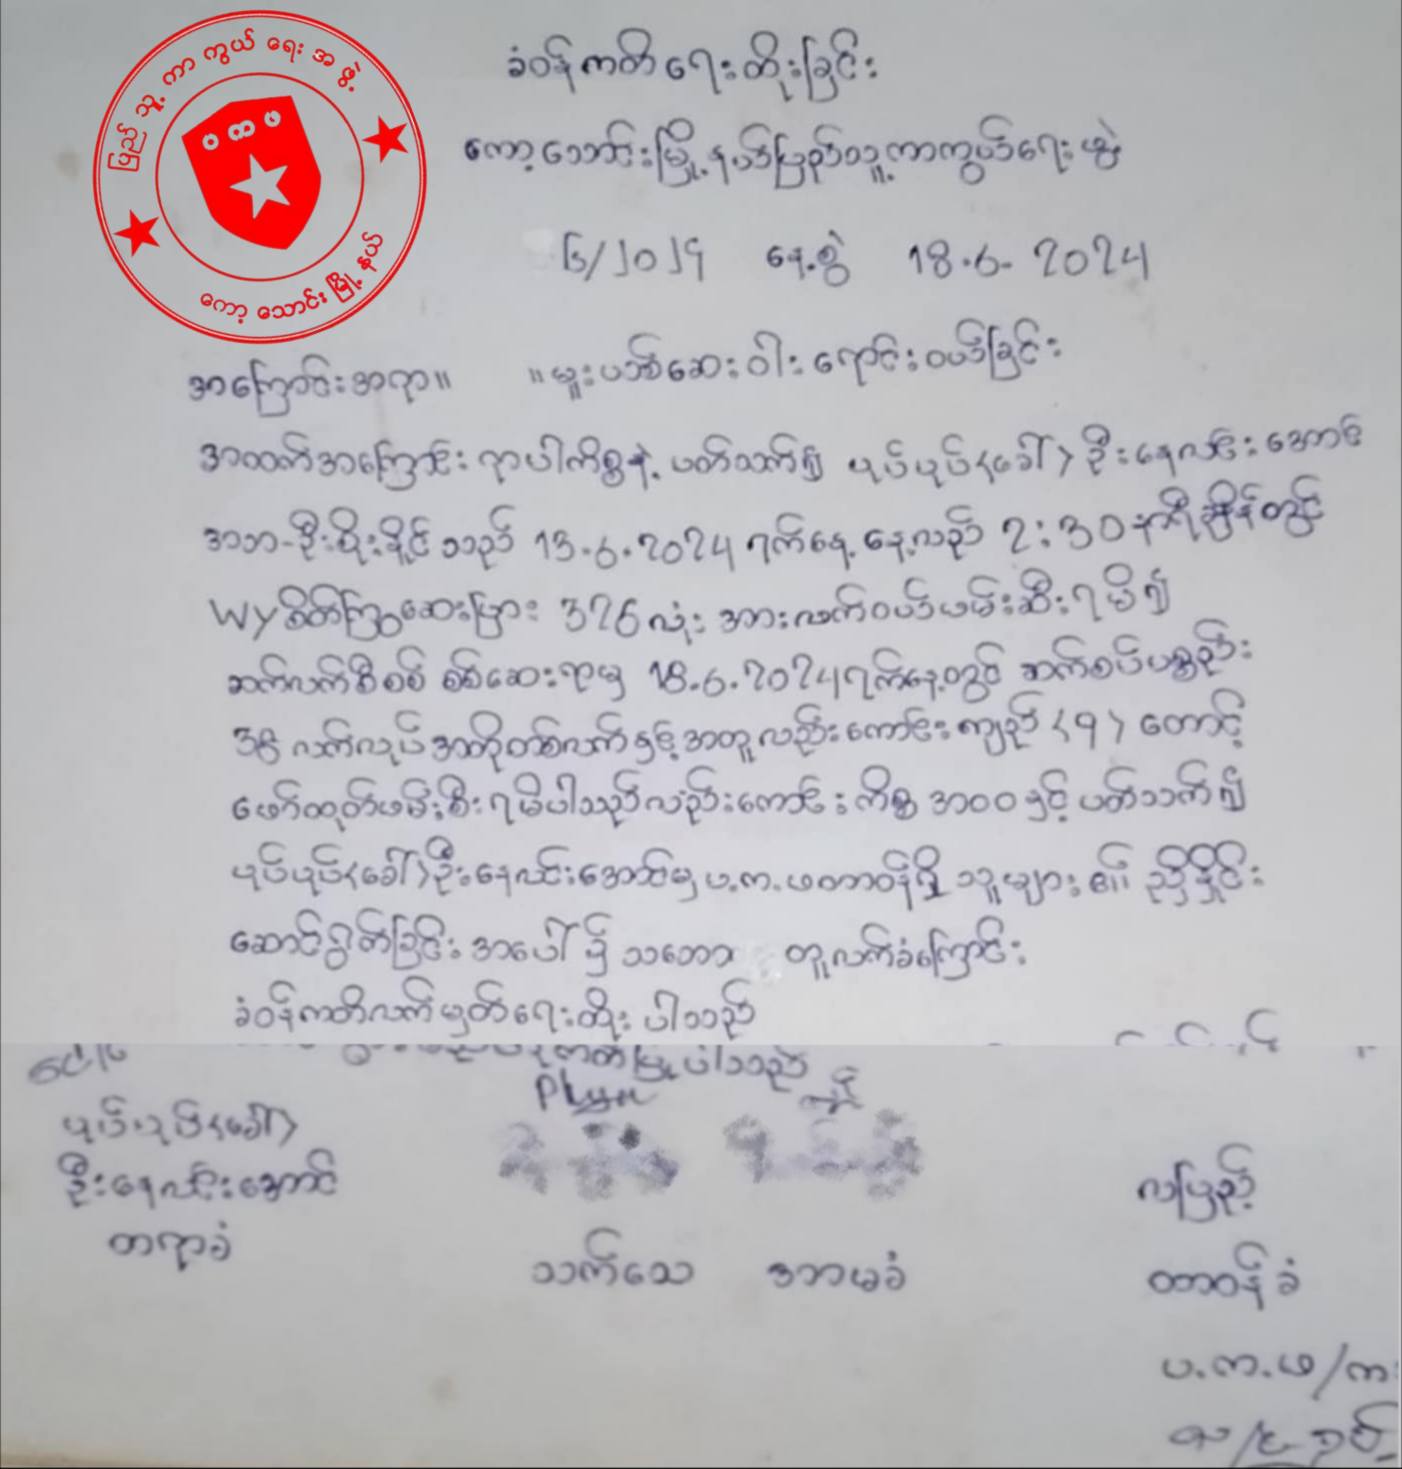 ပြည်သူ့ကာကွယ်ရေးအဖွဲ့
ပကဖ
ကော့သောင်းမြို့နယ်
ခံဝန်ကတိရေးထိုးခြင်း
ကော့သောင်းမြို့နယ်ပြည်သူ့ကာကွယ်ရေးအဖွဲ့
၆/၂၀၂၄ နေ့စွဲ 18.6.2024
အကြောင်းအရာ။ ။မူးယစ်ဆေးဝါးရောင်းဝယ်ခြင်း
အထက်အကြောင်းရာပါကိစ္စနဲ့ ပတ်သက်၍ ပုပ်ပုပ်<ခေါ်>ဦးနေလင်းအောင်
အဘ-ဦးစိုးနိုင်သည် 13.6.2024 ရက်နေ့ နေ့လည် 2:30နာရီချိန်တွင်
WYစိတ်ကြွဆေးပြား 326လုံး အားလက်ဝယ်ဖမ်းဆီးရမိ၍
ဆက်လက်စီစစ် စစ်ဆေးရာမှ 18.6.2024ရက်နေ့တွင် ဆက်စပ်ပစ္စည်း
38 လက်လုပ်အတိုတစ်လက်နှင့်အတူလည်းကောင်း ကျည် <၅> တောင့်
ဖော်ထုတ်ဖမ်းစီးရမိပါသည်လည်းကောင်း ကိစ္စ အဝဝနှင့် ပတ်သက်၍
ပုပ်ပုပ်<ခေါ်>ဦးနေလင်းအောင်မှ ပ.က.ဖတာဝန်ရှိ သူများ၏ ညှိနှိုင်း
ဆောင်ရွတ်ခြင်း အပေါ်၌ သဘော တူလက်ခံကြောင်း
ခံဝန်ကတိလက်မှတ်ရေးထိုး ပါသည်
ပုပ်ပုပ်<ခေါ်>
ဦးနေလင်းအောင်
တရားခံ
သက်သေ အာမခံ
လပြည့်
တာဝန်ခံ
ပ.က.ဖ/က